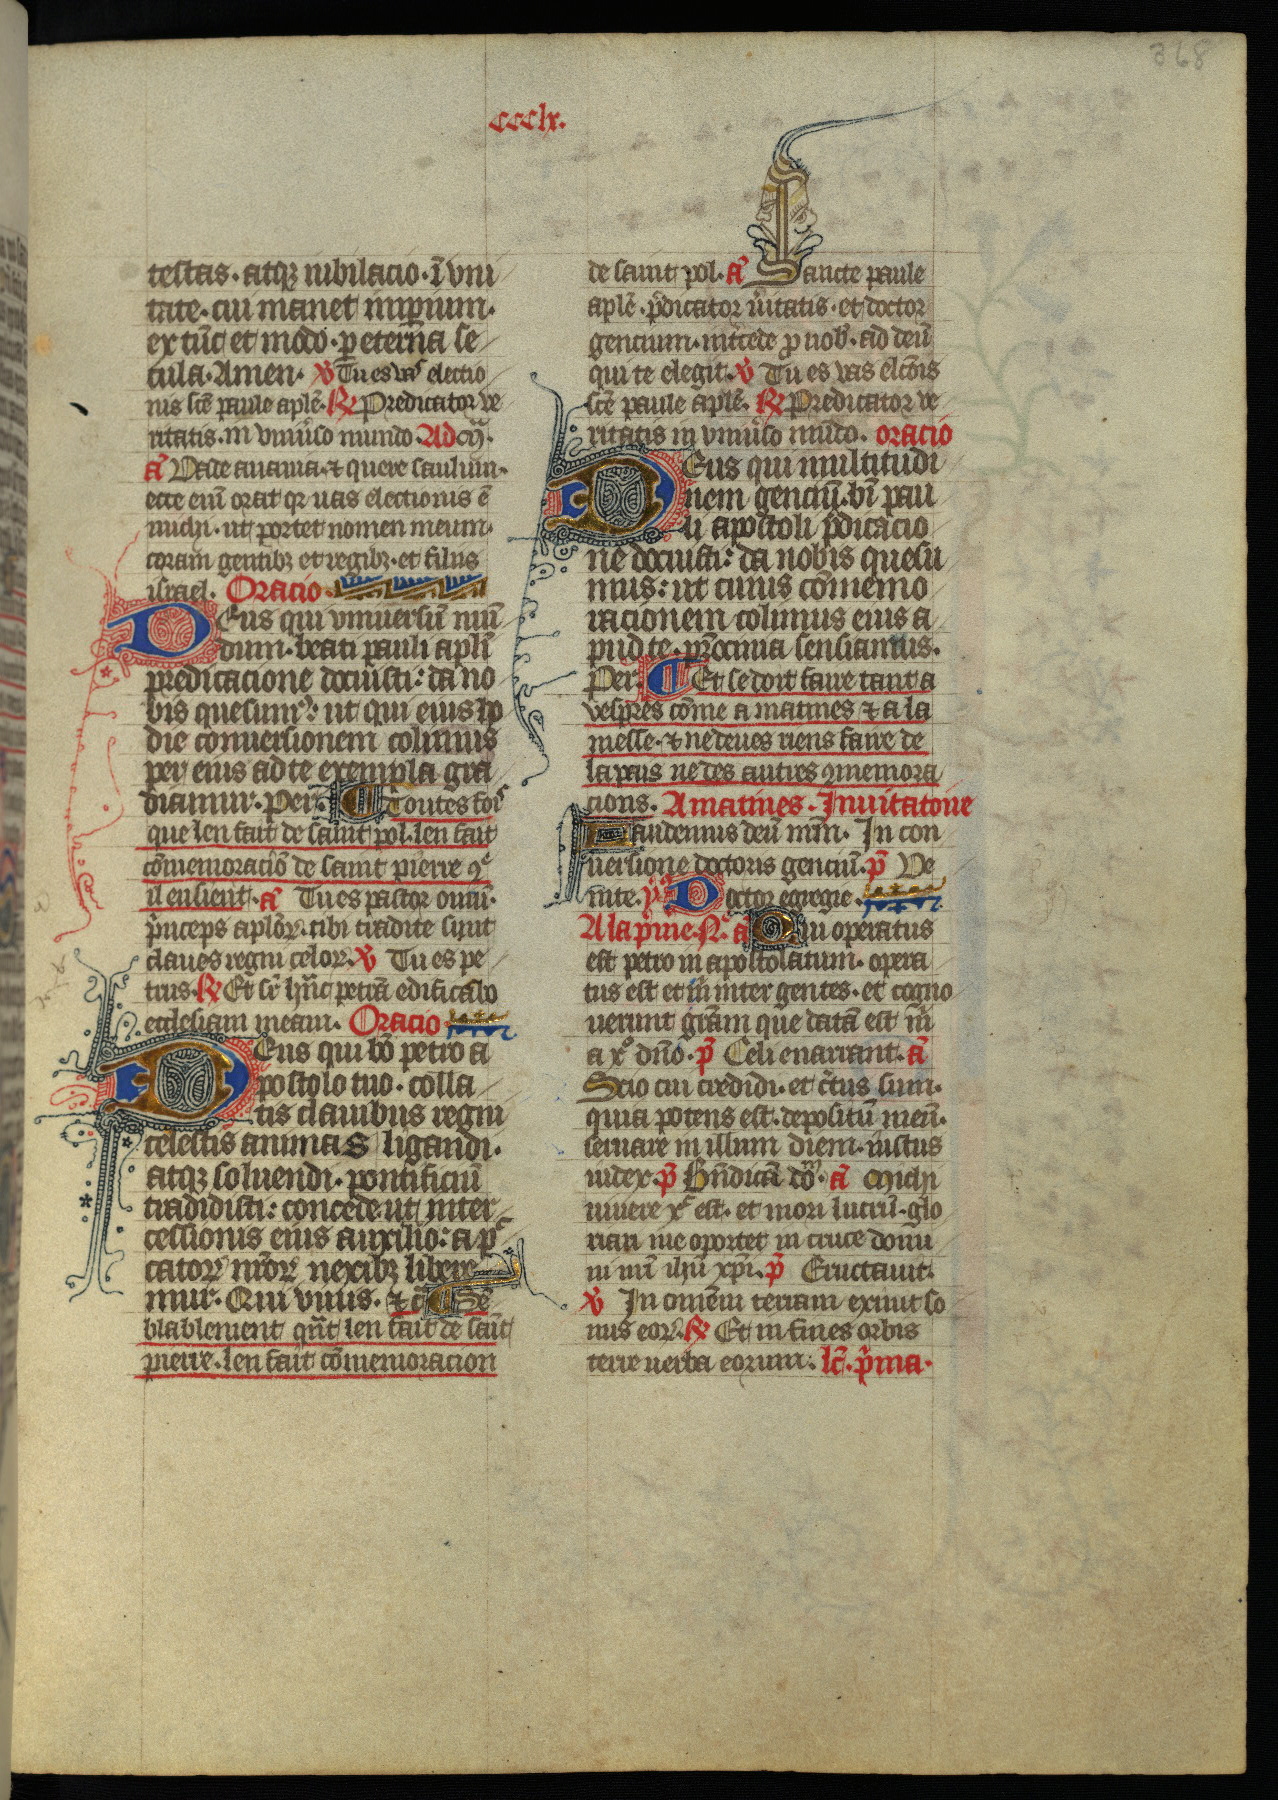 368
ccclx.
testas· atqꝫ iubilacio· ī vni
tate· cui manet imꝑium·
ex tūc et modo· ꝑ eterna se
cula· Amen· ꝟ Tu es vas electio
nis sc̄e paule aplē· ℟ Predicator ve
ritatis· in vniuˀso mundo· Ad mͣ·
añ Vade anania· ⁊ quere saulum·
ecce enī orat qr uas electionis ē
michi· ut portet nomen meum·
coram gentibꝫ et regibꝫ· et filiis
israel· Oracio
Deus qui vniuersū mū
dum· beati pauli apli
predicacione docuisti: da no
bis quesumˀ: ut qui eius ho
die conuersionem colimus
per eius ad te exempla gra
diamur· Per· ¶ Toutes foiˢ
que len fait de saint pol· len fait
cōmemoraciō de saint pierre 9ͤ
il ensient· añ Tu es pastor ouiū·
p̄nceps aplōꝝ· tibi tradite sunt
claues regni celoꝝ· ꝟ Tu es pe
trus· ℟ Et sr̄ hāc petrā edificabo
ecclesiam meam· Oracio
Deus qui bō petro a
postolo tuo· colla
tis clauibus regni
celestis animas ligandi·
atqꝫ soluendi· pontificiū
tradidisti: concede ut inter
cessionis eius auxilio: a pͨ
catoꝝ nr̄oꝝ nexibꝫ libere
mur· Qui viuis· ⁊ c̄ ¶ Sē
blablement qn̄t len fait de saīt
pierre· len fait cōmemoracion
de saint pol· añ Sancte paule
aplē· p̄dicator ūitatis· et doctor
gencium· int̄cede pro nob· ad deū
qui te elegit· ꝟ Tu es vas elcōis
sc̄e paule aplē· ℟ Predicator ve
ritatis in vniuˀso mūdo· oracio
Deus qui multitudi
nem genciū· bī pau
li apostoli p̄dicacio
ne docuisti: da nobis quesu
mus: ut cuius cōmemo
racionem colimus eius a
pud te· pr̄ocinia senciamus·
Per· ¶ Et se doit faire tant a
vespres cōme a matines ⁊ a la
messe· ⁊ ne deues riens faire de
la pais ne des autres 9memora
cions· A matines· Inuitatoire
Laudemus deū nr̄m· In con
uersione doctoris genciū· p̄ Ve
nite· yᵖ Doctor egregie·
A la p̄me N· a Qui operatus
est petro in apostolatum· opera
tus est et m̄ inter gentes· et cogno
uerunt grām que data est m̄
a xͦ dn̄o· p̄ Celi enarrant· añ
Scio cui credidi· et c̄tus sum·
quia potens est· depositū meū·
seruare in illum diem· iustus
iudex· p̄ Bn̄dicā dōᵐ· añ Michi
uiuere xͨ est· et mori lucrū· glo
riari me oportet in cruce domi
ni nr̄i ihū xp̄i· p̄ Eructauit·
ꝟ In omēm terram exiuit so
nus eoꝝ· ℟ Et in fines orbis
terre uerba eorum: lc̄· p̄ma·